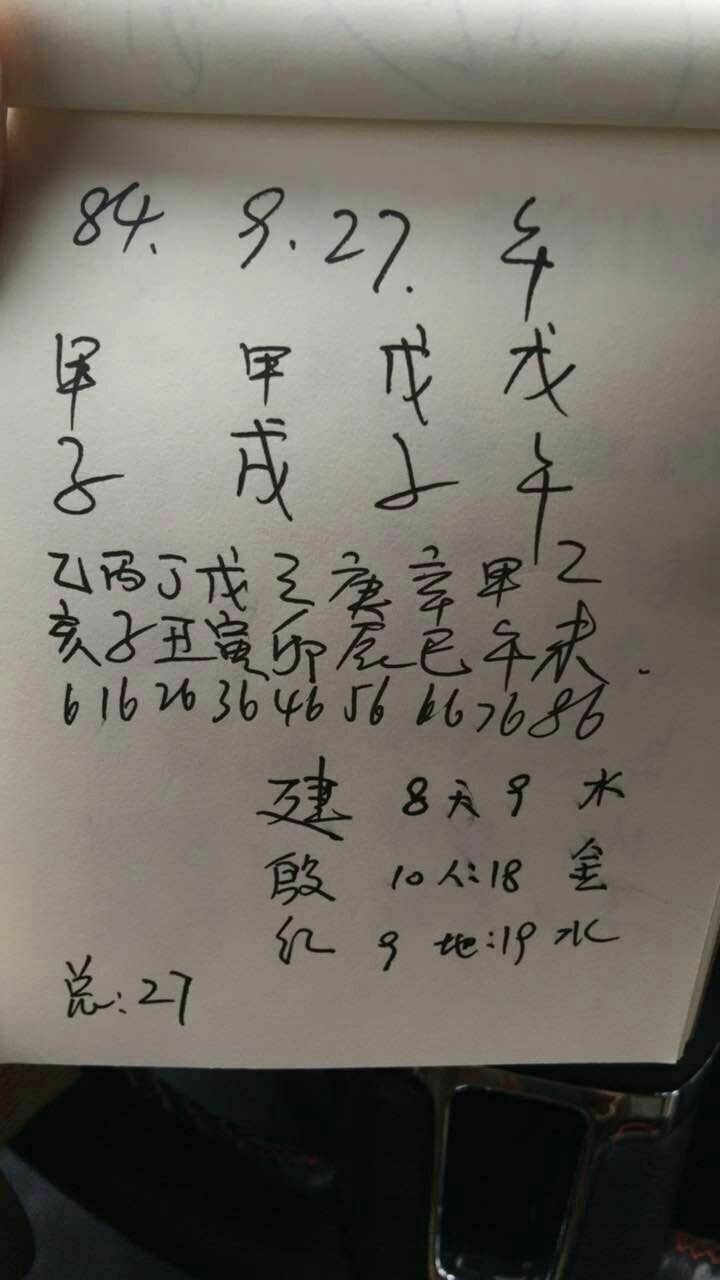 84. 9. 27. 午
甲 甲 戊 戊
子 戌 子 午
乙 丙 丁 戊 己 庚 辛 甲 乙
亥 子 丑 寅 卯 辰 巳 午 未.
6 16 26 36 46 56 66 76 86
建 8 天 9 水
殷 10 人:18 金
红 9 地:19 水
总:27